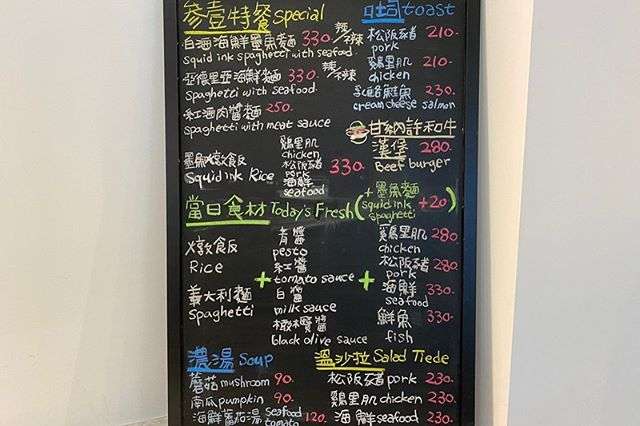 參壹特餐 special
白酒海鮮墨魚麵 330 辣/不辣
squid ink spaghetti with seafood
亞德里亞海鮮麵 330 辣/不辣
Spaghetti with seafood
紅酒肉醬麵 250.
spaghetti with meat sauce
墨魚燉飯
Squid ink Rice
雞里肌
chicken
松阪豬
pork
海鮮
seafood
330.
吐司 toast
松阪豬 210.
pork
雞里肌 210.
chicken
乳酪鮭魚 230.
cream cheese salmon
甘納許和牛
漢堡 280.
Beef burger
當日食材 Today's Fresh (+墨魚麵 squid ink spaghetti +20)
燉飯
Rice
義大利麵
Spaghetti
+
青醬
pesto
紅醬
tomato sauce
白醬
milk sauce
橄欖醬
black olive sauce
+
雞里肌 280.
chicken
松阪豬 280.
pork
海鮮 330.
seafood
鮮魚 330.
fish
濃湯 Soup
蘑菇 mushroom 90.
南瓜 pumpkin 90.
海鮮蕃茄湯 seafood tomato 120.
溫沙拉 Salad Tiede
松阪豬 pork 230.
雞里肌 chicken 230.
海鮮 seafood 230.